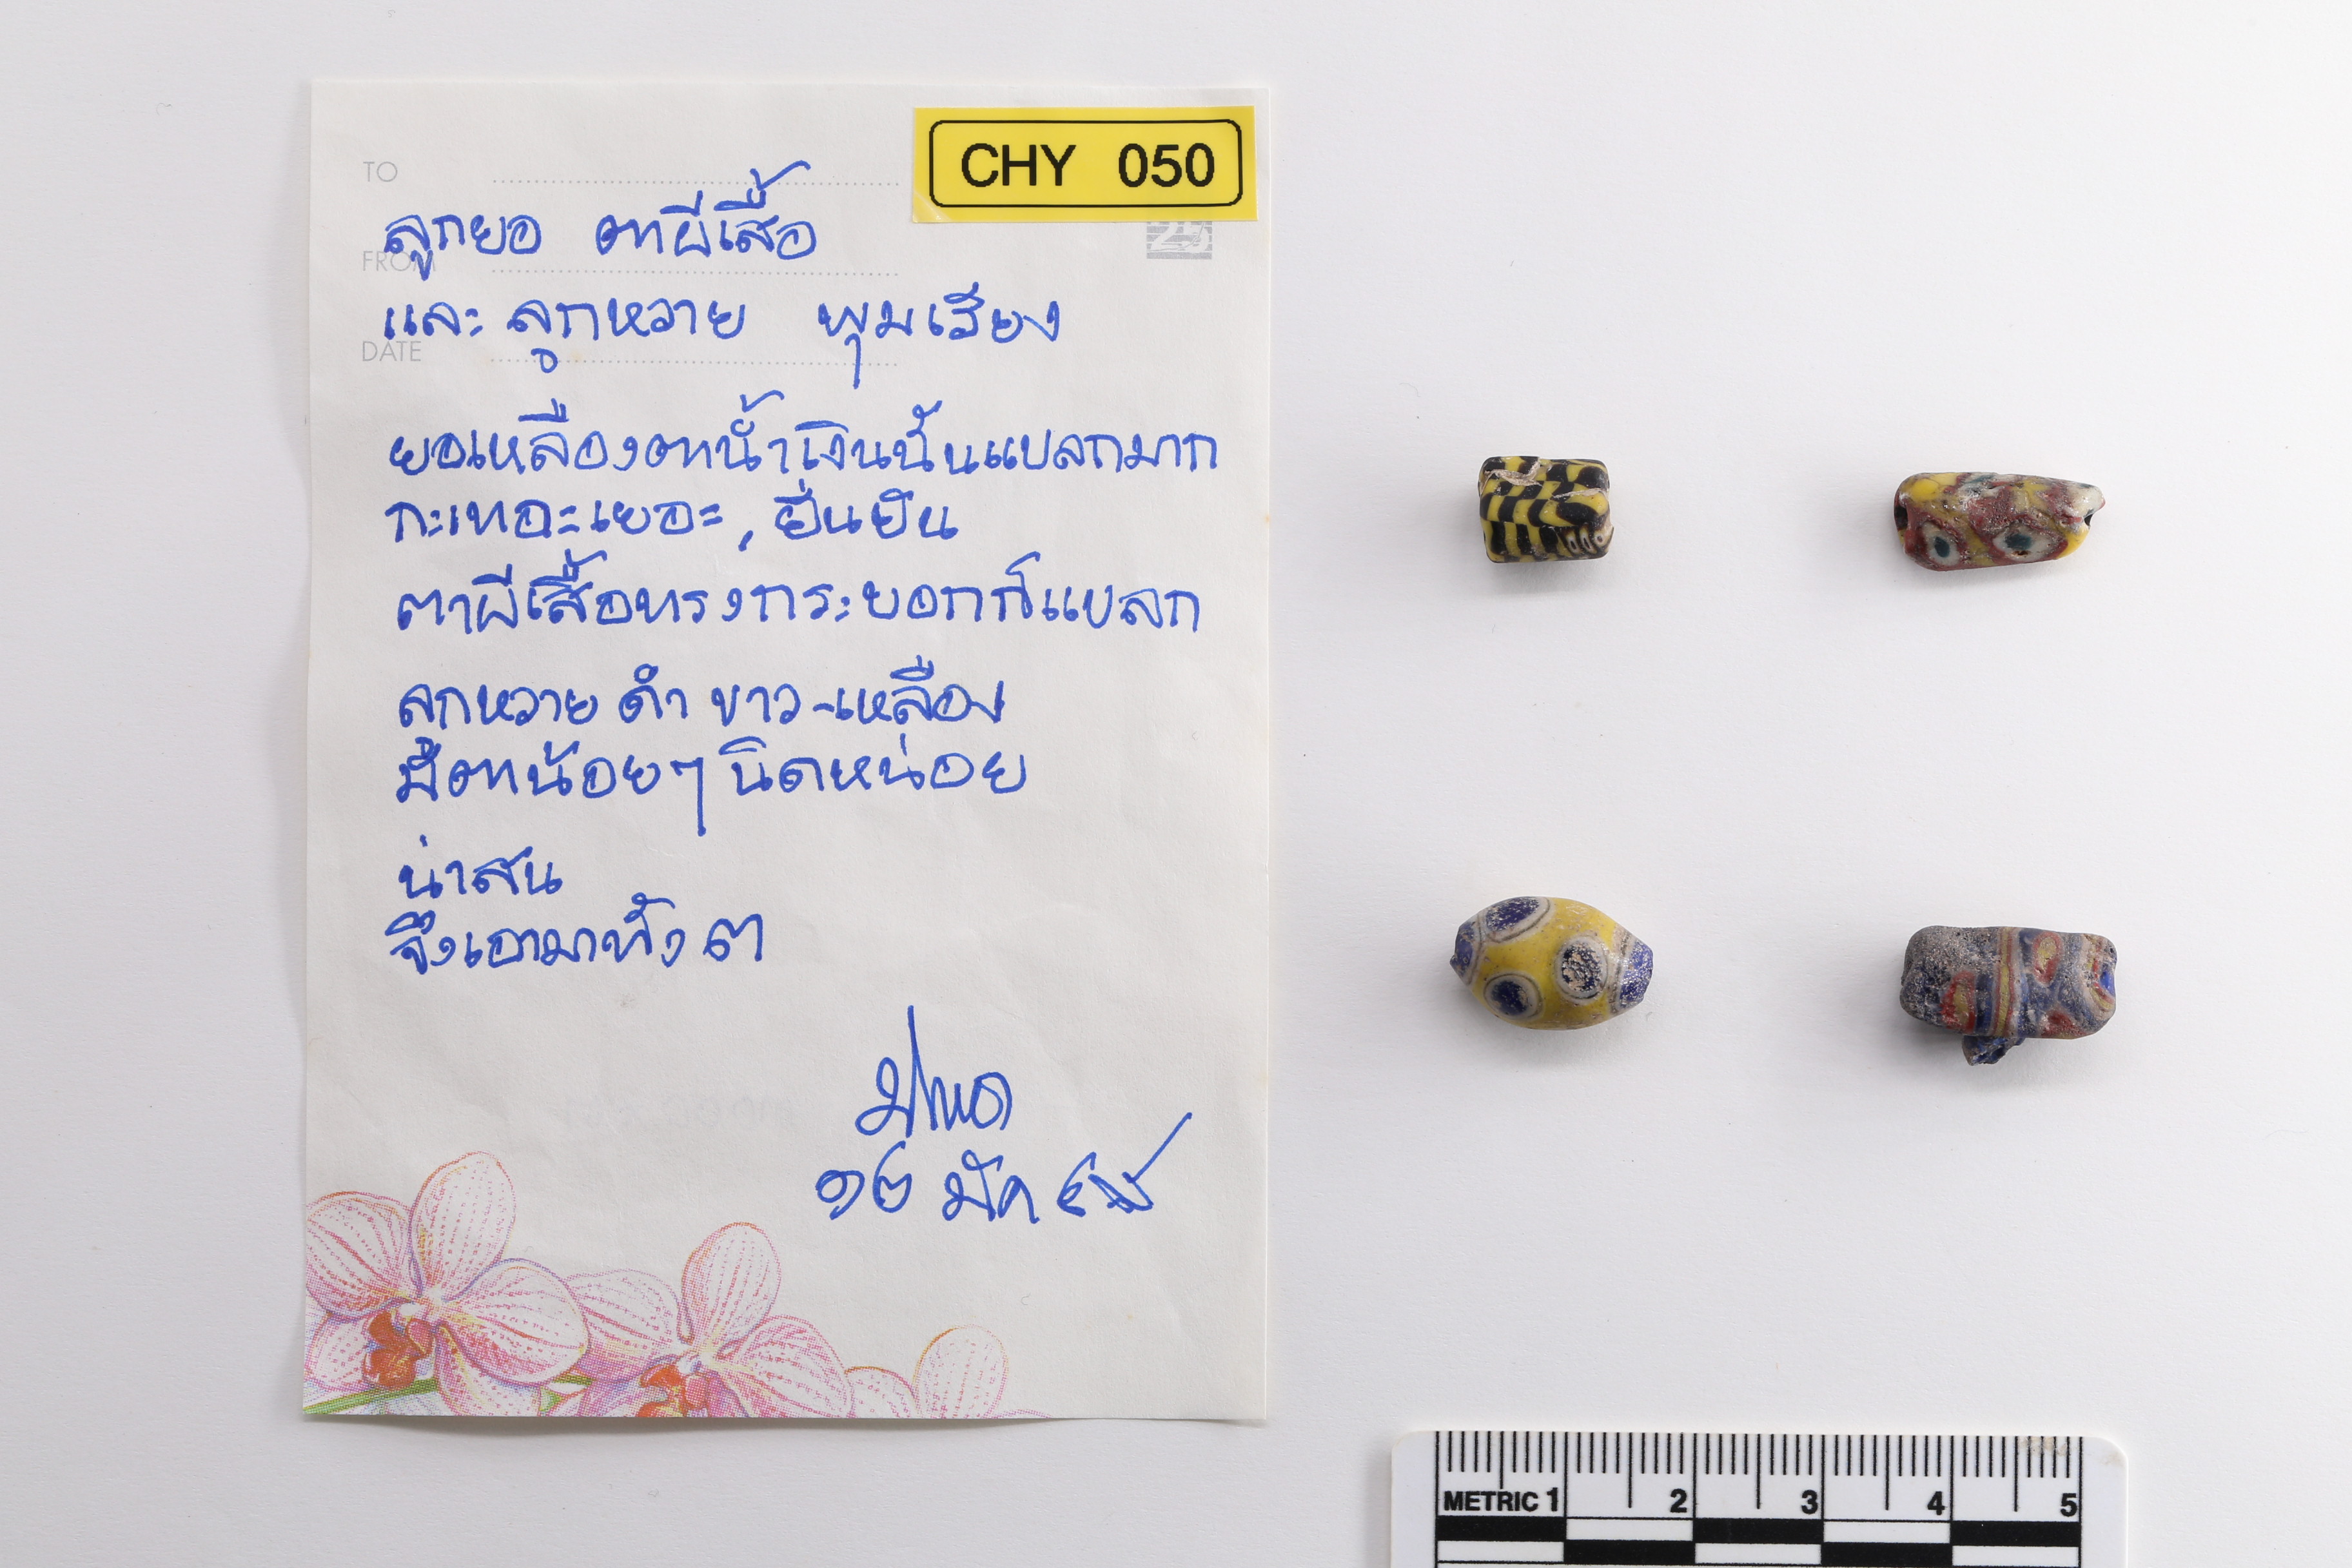 CHY 050
TO
ลูกยอ ตาผีเสื้อ
FROM
และ ลูกหวาย พุมเรียง
DATE
25
ยอเหลืองตาน้ำเงินนั้นแปลกมาก
กะเทาะเยอะ, ยืนยัน
ตาผีเสื้อทรงกระบอกก็แปลก
ลูกหวาย ดำ ขาว-เหลือง
มีตาน้อยๆ นิดหน่อย
น่าสน
จึงเอามาทั้ง ๓
๑๒ มีค
METRIC 1 2 3 4 5